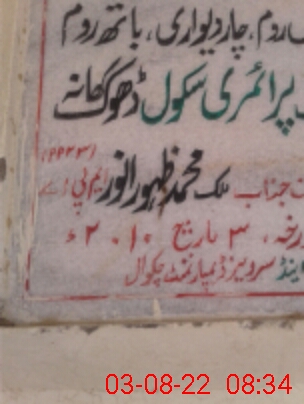 روم، چار دیواری، باتھ روم
پرائمری سکول ڈھوک گھانہ
جناب ملک محمد ظہور انور ایم پی اے
۳ تاریخ ۲۰۱۰ء
اینڈ سروسز ڈیپارٹمنٹ چکوال
03-08-22 08:34